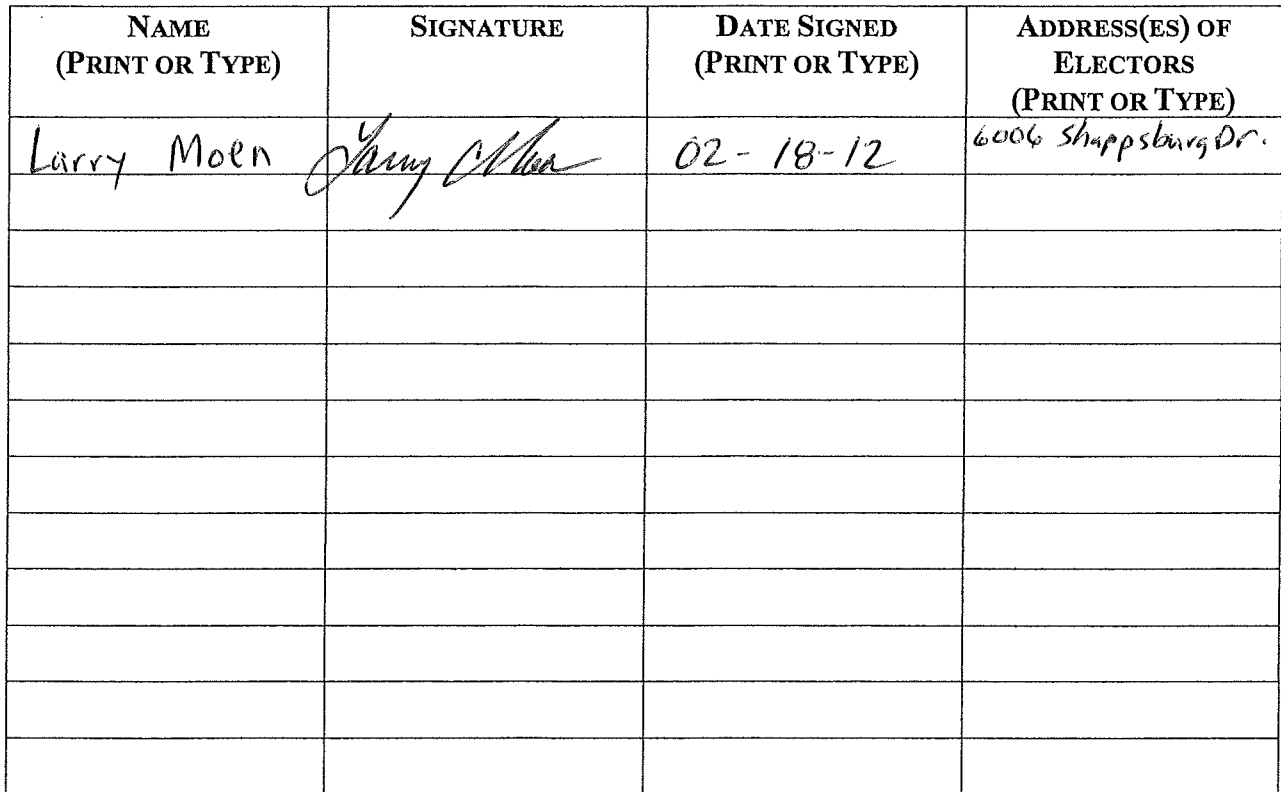 NAME
(PRINT OR TYPE)
SIGNATURE
DATE SIGNED
(PRINT OR TYPE)
ADDRESS(ES) OF
ELECTORS
(PRINT OR TYPE)
Larry Moen
Larry C Moen
02-18-12
6006 Shappsburg Dr.